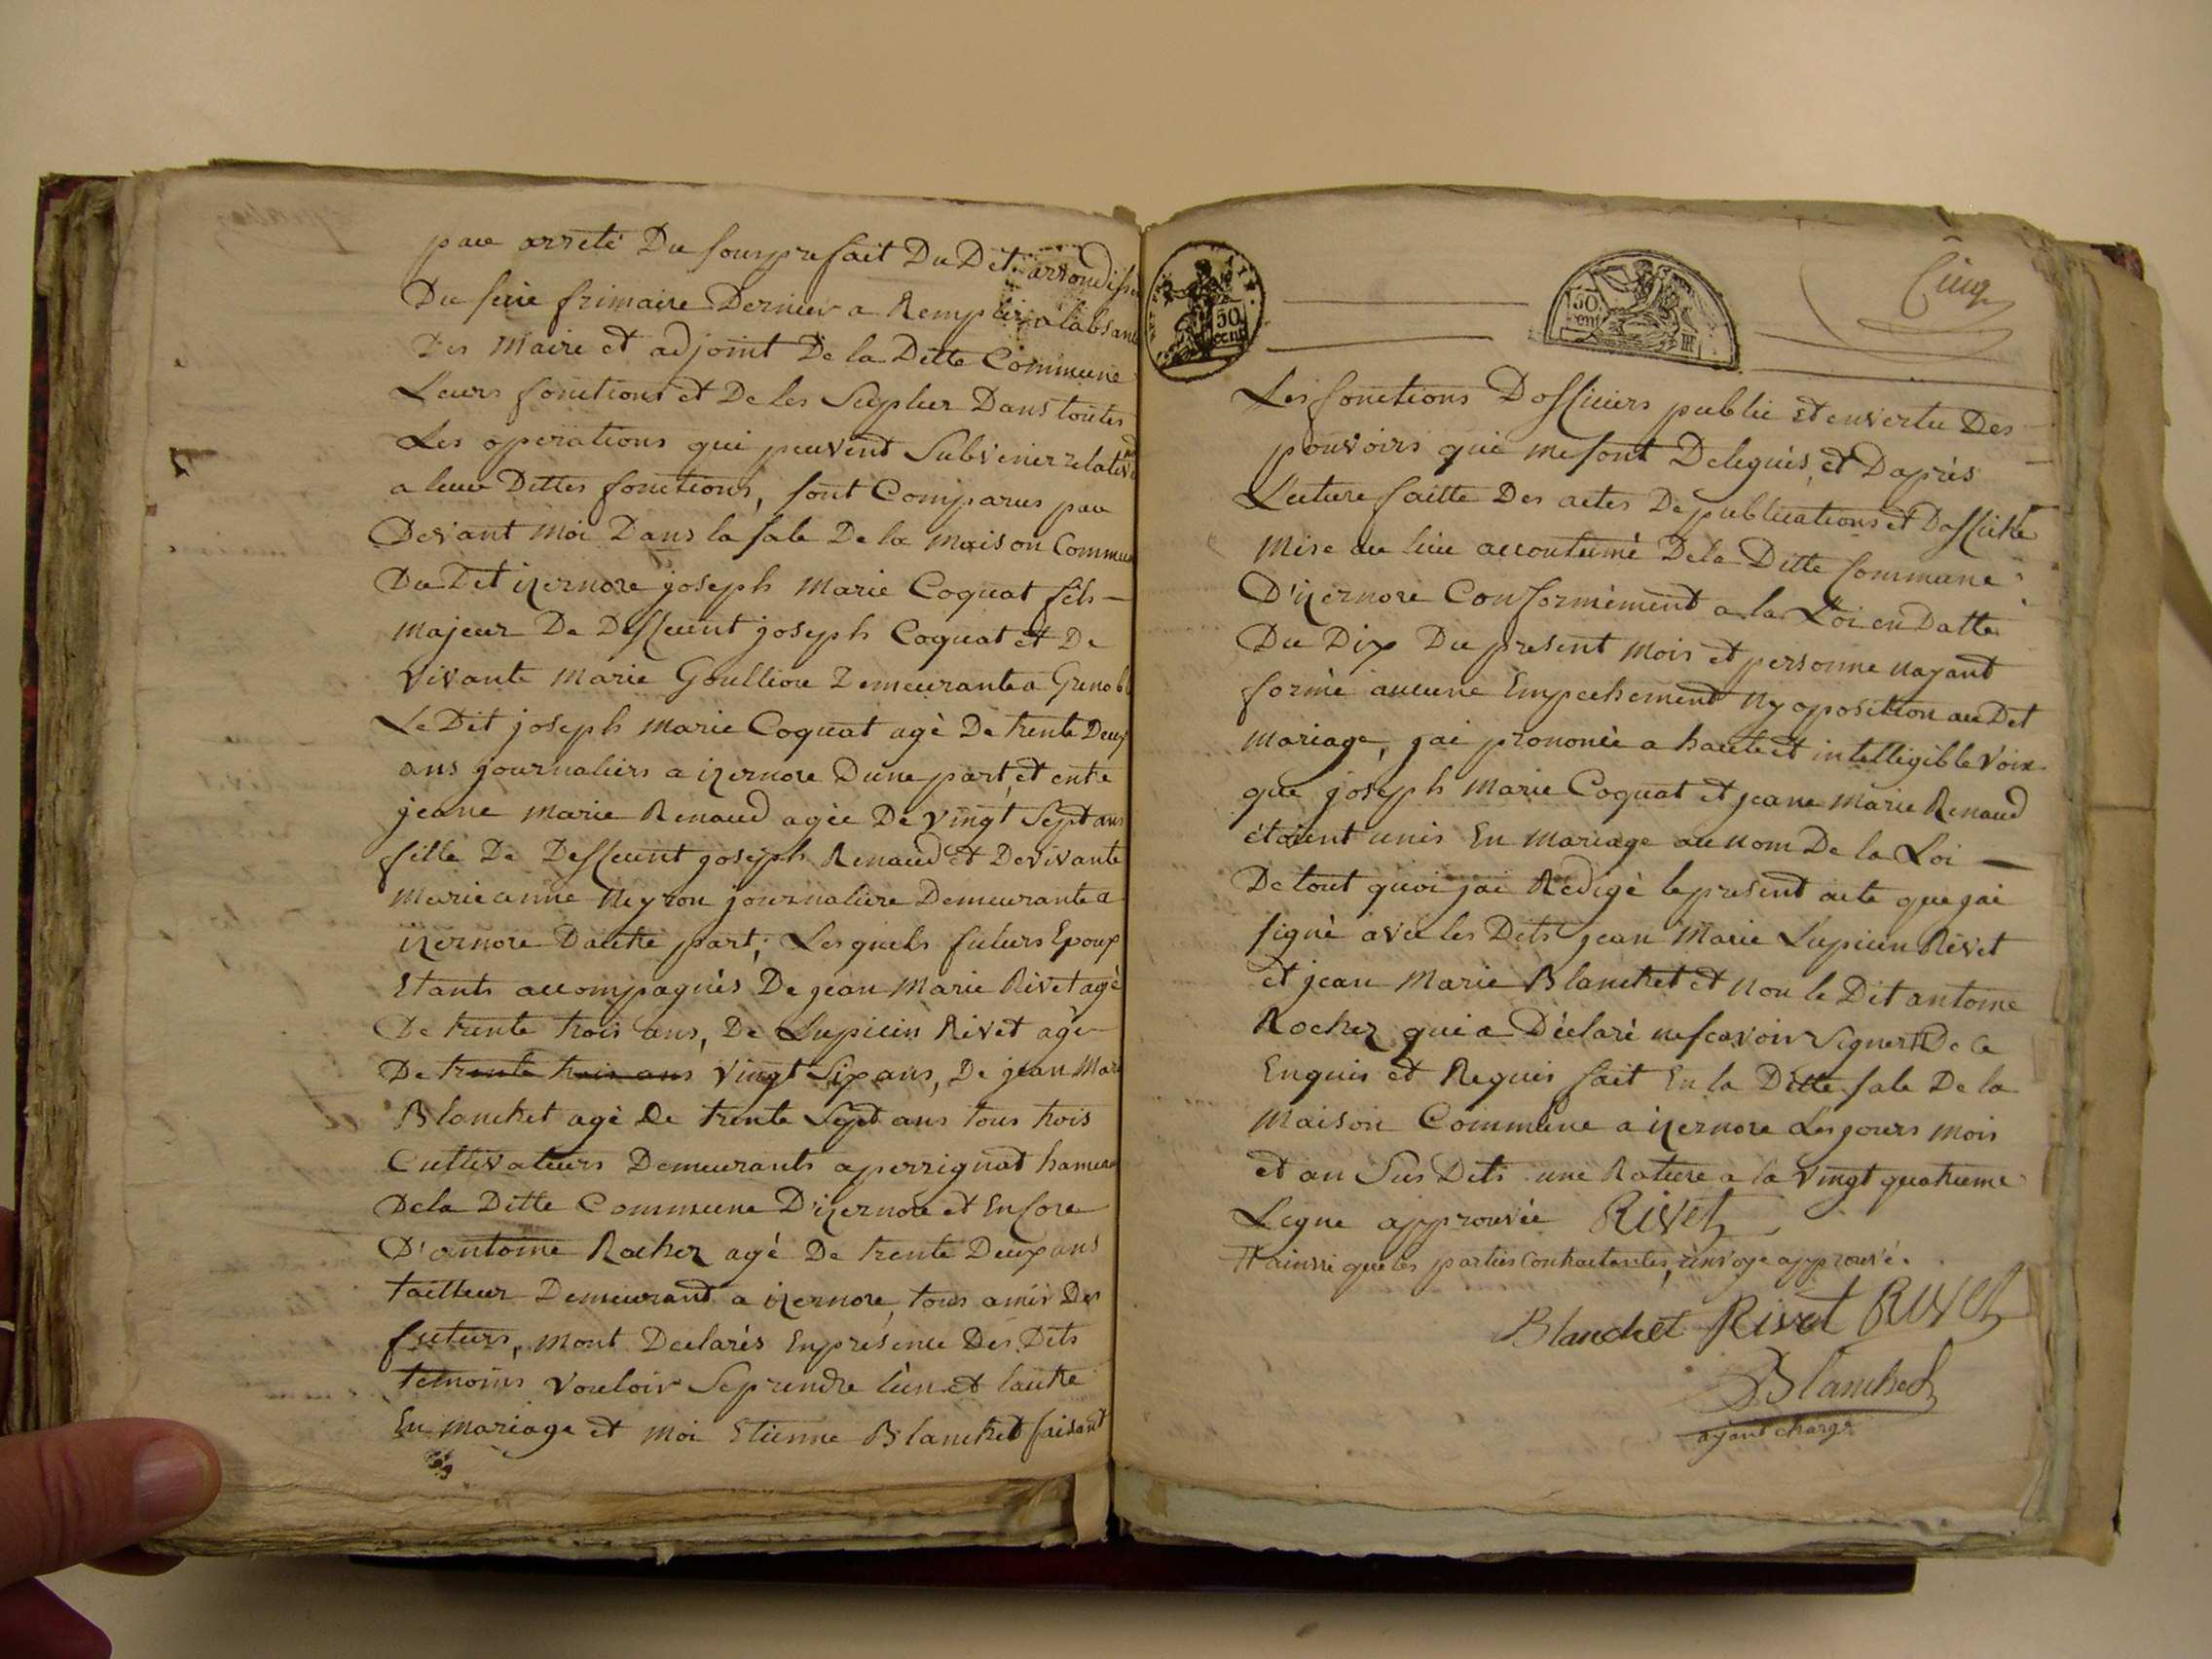 par arreté Du sousprefait Du Dit arrondisse
Du seize frimaire Dernier a Remplir a labsan
Des Maire et adjoint De la Ditte Commune
Leurs fonctions et De les Supleer Dans toutes
Les operations qui peuvent Subvenir relative
a leur Dittes fonctions, sont Comparus par
Devant Moi Dans la sale De la Maison Commun
Du Dit izernore joseph Marie Coquat fils -
Majeur De Deffunt joseph Coquat et De
Vivante Marie Goullion Demeurante a Grenobl
Le Dit joseph Marie Coquat agé De trente Deux
ans journaliers a izernore Dune part, et entre
jeane Marie Renaud agée De vingt Sept ans
fille De Deffunt joseph Renaud et De vivante
Marieanne Neyron journaliere Demeurante a
izernore Dautre part; Lesquels futurs Epoux
Etants accompagnés De jean Marie Rivet agé
De trente trois ans, De Lupicin Rivet agé
De trente trois ans Vingt Six ans, De jean Mari
Blanchet agé De trente Sept ans tous trois
Cultivateurs Demeurants a perrignat hameau
De la Ditte Commune D'izernore et Encore
D'antoine Rocher agé De trente Deux ans
tailleur Demeurant a izernore, tous amis Des
futurs, Mont Declarés En présence Des Dits
temoins vouloir Se prendre lun et lautre
En Mariage et Moi Etienne Blanchet faisant
50 cent
50 cent
Cinq
Les fonctions Dofficiers public et envertu Des
pouvoirs qui me sont Delegués, et Daprès
Lecture faitte Des actes De publications et Daffiche
Mise au lieu accoutumé De la Ditte Commune
D'izernore Conformément a la Loi en Datte
Du Dix Du present Mois et personne nayant
formé aucune Empechement Ny oposition au Dit
Mariage, jai prononcée a haute et intelligible Voix
que joseph Marie Coquat et jeane Marie Renaud
étoient unis En Mariage au nom De la Loi -
De tout quoi jai Rédigé le present acte que jai
signé avec les Dits jean Marie Lupicin Rivet
et jean Marie Blanchet et Non le Dit antoine
Rocher qui a Déclaré ne scavoir Signer # De ce
Enquis et Requis fait En la Ditte sale De la
Maison Commune a izernore Les jours Mois
et an Sus Dits une Rature a la Vingt quatrieme
Ligne approuvée Rivet
# ainssi que les parties Contractantes, renvoye approuvé.
Blanchet Rivet Rivet
Blanchet
ayant charge